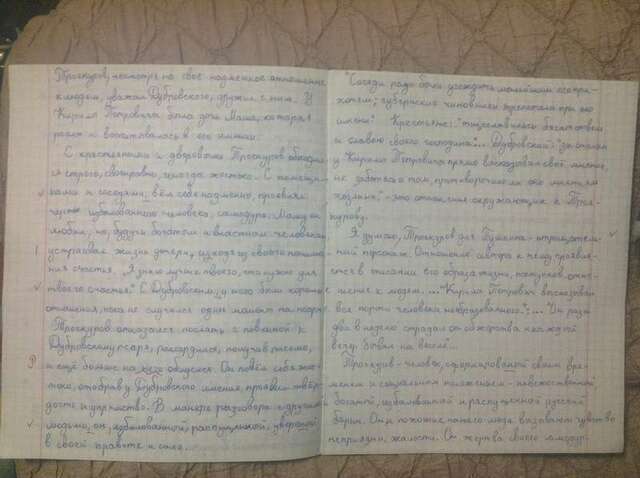 Троекуров, несмотря на своё надменное отношение
к людям, уважал Дубровского, дружил с ним. У
Кирила Петровича была дочь Маша, которая
росла и воспитывалась в его имении.
С крестьянами и дворовыми Троекуров обходил-
ся строго, своенравно, иногда жестоко. С помещи-
ками и соседями, вёл себя надменно, проявлял
черты избалованного человека, самодура. Машу он
любил, но, будучи богатым и властным человеком,
устраивал жизнь дочери, исходя из своего понима-
ния счастья. „Я знаю лучше твоего, что нужно для
твоего счастья." С Дубровским, у него были хорошие
отношения, пока не случился один момент на псарне.
Троекуров отказался послать с повинной к
Дубровскому псаря, рассердился, получив письмо,
и ещё больше на него обозлился. Он повёл себя жес-
токо, отобрав у Дубровского имение, проявил твёр-
дость и упрямство. В манере разговора с другими
людьми, он, избалованный, распущенный, уверенный
в своей правоте и силе.
"Соседи рады были угождать малейшим его при-
хотям; губернские чиновники трепетали при его
имени". Крестьяне: "тщеславились богатством
и славою своего господина"... Дубровский: "за столом
у Кирила Петровича прямо высказывал своё мнение,
не заботясь о том, противоречило ли оно мнениям
хозяина" - это отношение окружающих к Трое-
курову.
Я думаю, Троекуров для Пушкина - отрицатель-
ный персонаж. Отношение автора к нему проявля-
ется в описании его образа жизни, поступков, отно-
шение к людям. ... "Кирила Петрович выказывал
все пороки человека необразованного"; ... "Он раза
два в неделю страдал от обжорства и каждый
вечер бывал на веселе"...
Троекуров - человек, сформированный своим вре-
менем и социальным положением - невежественный
богатый, избалованный и распущенный русский
барин. Он и похожие на него люди вызывают чувство
неприязни, жалости. Он жертва своего самодур-